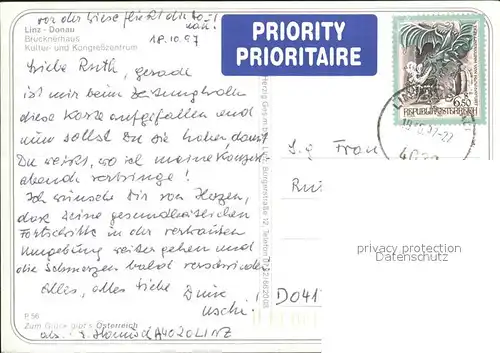 vor der Wiese fließt die Do-
nau!
Linz - Donau
Brucknerhaus
Kultur- und Kongreßzentrum
18.10.97
PRIORITY
PRIORITAIRE
6.50
REPUBLIK ÖSTERREICH
Liebe Ruth, gerade
ist mir beim Zeitungholen
diese Karte aufgefallen und
nun sollst Du sie haben damit
Du weißt, wo ich meine Konzert-
abende verbringe!
Ich wünsche Dir von Herzen,
dass Deine gesundheitlichen
Fortschritte in der vertrauten
Umgebung weiter gehen und
die Schmerzen bald verschwinden.
Alles, alles Liebe Deine
Uschi
P 56
Zum Glück gibt's Österreich
A4020 LINZ
S.g. Frau
Ru
D041
privacy protection
Datenschutz